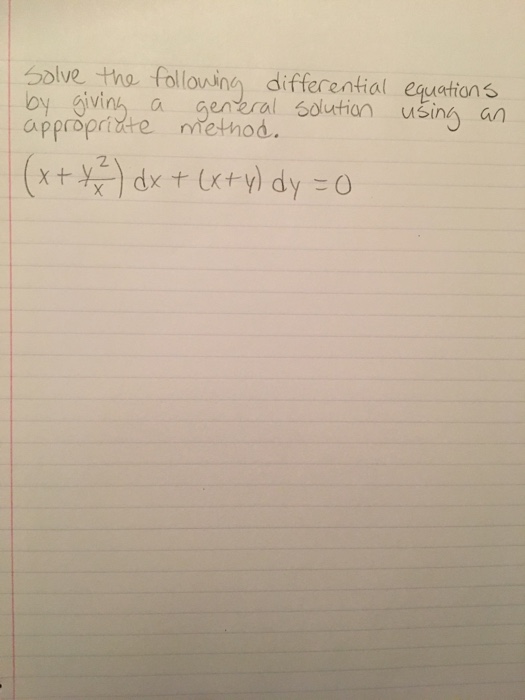 Solve the following differential equations
by giving a general solution using an
appropriate method.
(x + y²/x) dx + (x+y) dy = 0